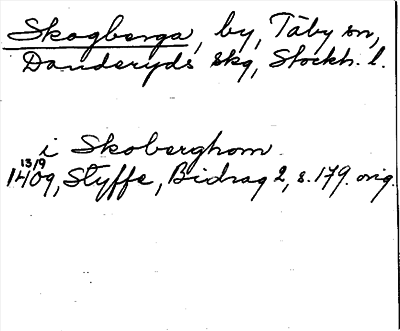 Skogberga, by, Täby sn,
Danderyds skg, Stockh. l.
i Skoberghom
13/9
1409, Styffe, Bidrag 2, s. 179. orig.